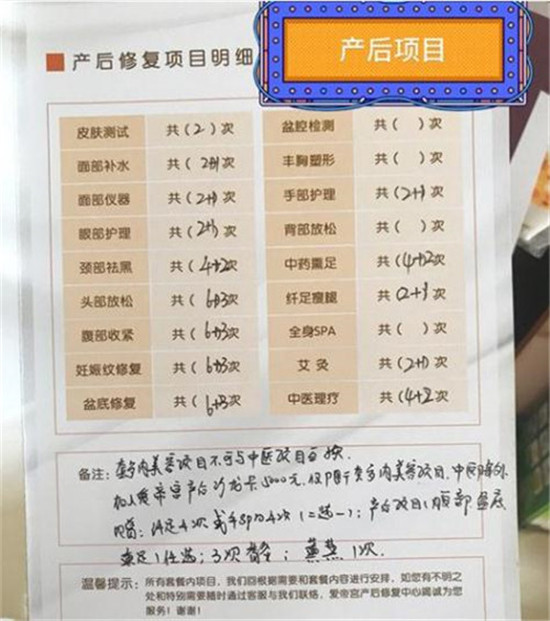 产后项目
产后修复项目明细
皮肤测试 共(2)次 盆腔检测 共( )次
面部补水 共(2+1)次 丰胸塑形 共( )次
面部仪器 共(2+1)次 手部护理 共(2+1)次
眼部护理 共(2+1)次 背部放松 共( )次
颈部祛黑 共(4+2次 中药熏足 共(4+2次
头部放松 共(6+3次 纤足瘦腿 共(2+1次
腹部收紧 共(6+3次 全身SPA 共( )次
妊娠纹修复 共(6+3次 艾灸 共(2+1)次
盆底修复 共(6+3次 中医理疗 共(4+2次
备注：套餐内美容项目不可与中医项目互换
加入爱帝宫产后沙龙卡5000元，仅限于套餐内美容项目，中医除外
4次(二选一)；产后项目：颈部
1任选；3次
1次.
温馨提示：所有套餐内项目，我们回根据需要和套餐内容进行安排，如您有不明之
处和特别需要随时通过客服与我们联络，爱帝宫产后修复中心竭诚为您
服务！谢谢！